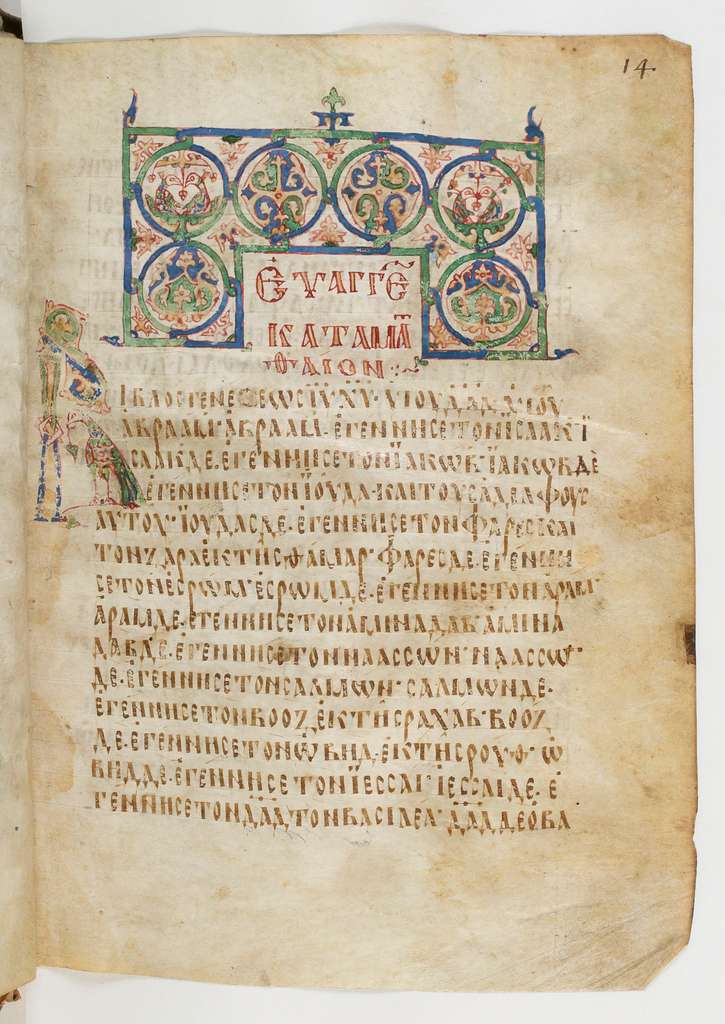 14
ΕΥΑΓΓΕ
ΚΑΤΑΜΑ
ΘΑΙΟΝ
ΒΙΒΛΟΣΓΕΝΕΣΕΩΣΙΥΧΥ·ΥΙΟΥΔΑΔ·ΥΙΟΥ
ΑΒΡΑΑΜ·ΑΒΡΑΑΜ·ΕΓΕΝΝΙΣΕΤΟΝΙΣΑΑΚ·Ϊ
ΣΑΑΚΔΕ·ΕΓΕΝΝΙΣΕΤΟΝΪΑΚΩΒ·ΪΑΚΩΒΔΕ
ΕΓΕΝΝΙΣΕΤΟΝΪΟΥΔΑ·ΚΑΙΤΟΥΣΑΔΕΛΦΟΥΣ
ΑΥΤΟΥ·ΪΟΥΔΑΣΔΕ·ΕΓΕΝΝΙΣΕΤΟΝΦΑΡΕΣΚΑΙ
ΤΟΝΖΑΡΑΕΚΤΙΣΘΑΜΑΡ·ΦΑΡΕΣΔΕ·ΕΓΕΝΝΙ
ΣΕΤΟΝΕΣΡΩΜ·ΕΣΡΩΜΔΕ·ΕΓΕΝΝΙΣΕΤΟΝΑΡΑΜ·
ΑΡΑΜΔΕ·ΕΓΕΝΝΙΣΕΤΟΝΑΜΙΝΑΔΑΒ·ΑΜΙΝΑ
ΔΑΒΔΕ·ΕΓΕΝΝΙΣΕΤΟΝΝΑΑΣΣΩΝ·ΝΑΑΣΣΩΝ
ΔΕ·ΕΓΕΝΝΙΣΕΤΟΝΣΑΛΜΩΝ·ΣΑΛΜΩΝΔΕ·
ΕΓΕΝΝΙΣΕΤΟΝΒΟΟΖ·ΕΚΤΙΣΡΑΧΑΒ·ΒΟΟΖ
ΔΕ·ΕΓΕΝΝΙΣΕΤΟΝΩΒΙΔ·ΕΚΤΙΣΡΟΥΘ·Ω
ΒΙΔΔΕ·ΕΓΕΝΝΙΣΕΤΟΝΪΕΣΣΑΙ·ΙΕΣΣΑΙΔΕ·Ε
ΓΕΝΝΙΣΕΤΟΝΔΑΔΤΟΝΒΑΣΙΛΕΑ·ΔΑΔΔΕΟΒΑ